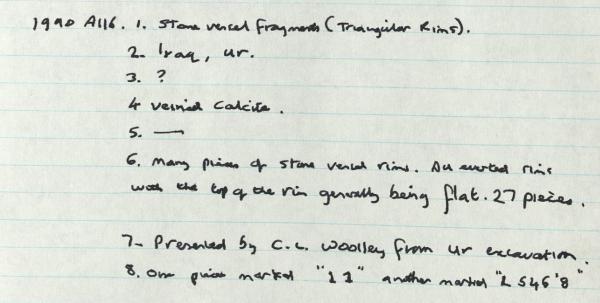 1990 A116. 1. Stone vessel fragments (Triangular Rims).
2. Iraq, Ur.
3. ?
4 veined calcite.
5. —
6. Many pieces of stone vessel rims. All everted rims
with the top of the rim generally being flat. 27 pieces.
7- Presented by C.L. Woolley from Ur excavation.
8. One piece marked "11" another marked "L 546'8"